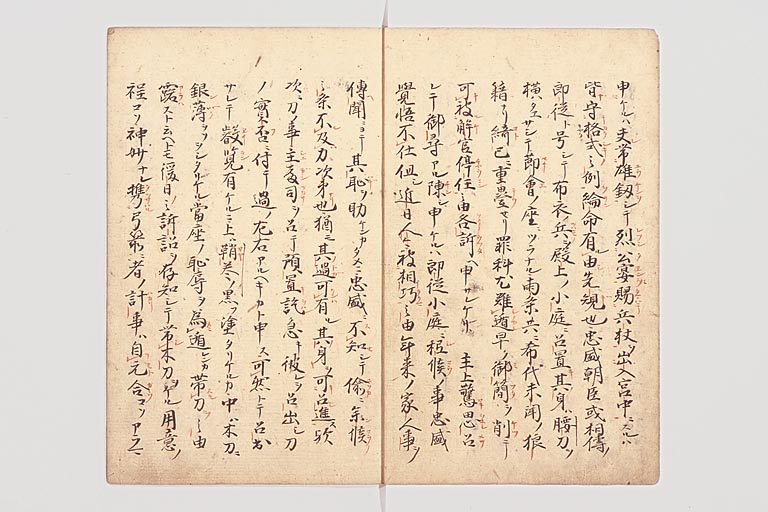 申ケルハ夫帯雄劔シテ烈公宴賜兵杖ヲ出入宮中スルハ
皆守格式之例綸命有由先規也忠盛朝臣或相傳ノ
郎従ト号シテ布衣兵ヲ殿上ノ小庭ニ召置其身ハ腰刀ヲ
横タエサシテ節會ノ座ニツラナル両条共ニ希代未聞ノ狼
籍ナリ綺已ニ重畳セリ罪科尤難遁早ク御簡ヲ削テ
可被解官停任之由各訴ヘ申サレケリ 主上驚思召
シテ御尋アル陳シ申ケルハ郎従小庭ニ祗候ノ事忠盛
覚悟不仕但シ近日人々被相巧之由年来ノ家人事ヲ
傳聞ニヨテ其恥ヲ助ケンカタメニ忠盛ニ不知シテ偸ニ参候
之条不及力次第也猶ニ其過可有ハ其身ヲ可召進ス歟
次ニ刀ノ事主殿司ニ召テ預置訖急キ被レ召出之刀
ノ實否ニ付テ過ノ左右アルヘキカト申ス可然トテ召出
サレテ叡覧有ケルニ上ハ鞘巻ノ黒ク塗タリケルカ中ハ木刀ニ
銀薄ヲソシタリケル當座ノ恥辱ヲ為遁レンカ帯刀之由
露ストモ云ヘトモ後日之訴訟ヲ存知シテ帯木刀ケル用意ノ
程コソ神妙ナレ携弓箭者ノ計事ハ自元合コソアラマ